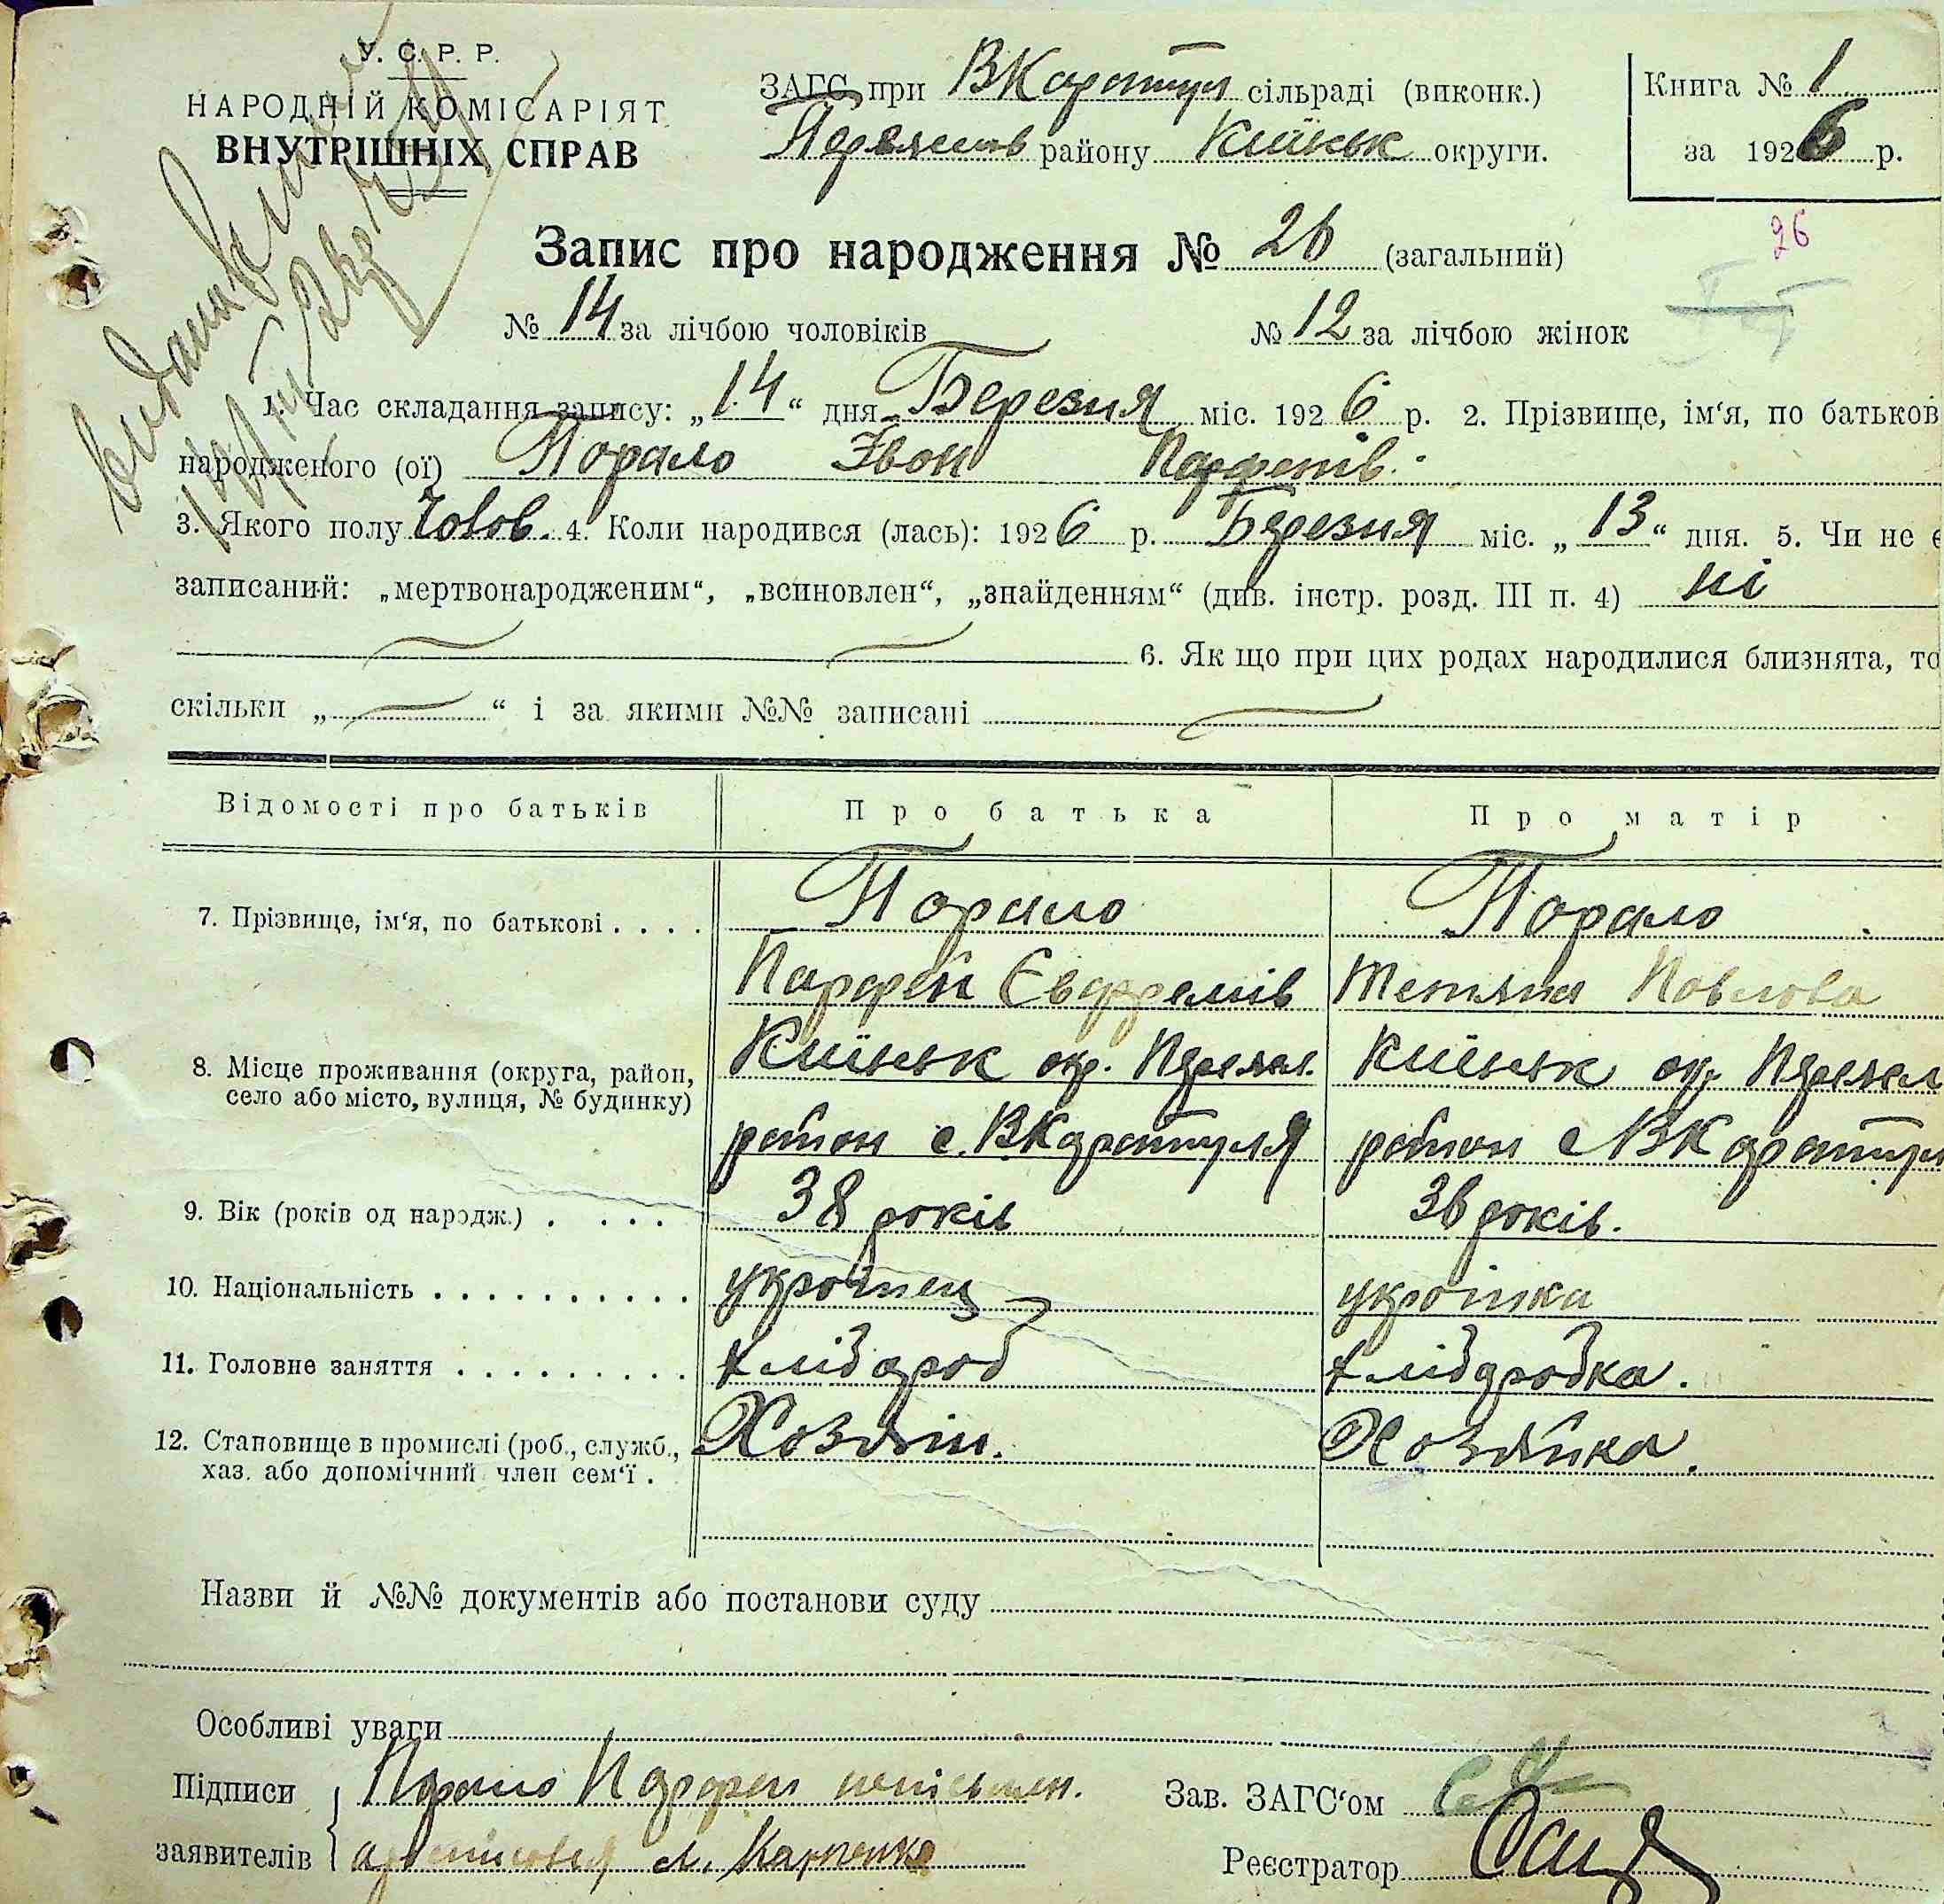 У. С. Р. Р.
НАРОДНІЙ КОМІСАРІЯТ
ВНУТРІШНІХ СПРАВ
ЗАГС при ВКаратул сільраді (виконк.)
Переяслів району Київськ округи.
Книга № 1
за 1926 р.
26
Запис про народження № 26 (загальний)
№ 14 за лічбою чоловіків № 12 за лічбою жінок
1. Час складання запису: „14“ дня Березня міс. 1926 р. 2. Прізвище, ім‘я, по батьков
народженого (ої) Порало Іван Парфенів.
3. Якого полу Чолов. 4. Коли народився (лась): 1926 р. Березня міс. „13“ дня. 5. Чи не є
записаний: „мертвонародженим“, „всиновлен“, „знайденням“ (див. інстр. розд. III п. 4) ні
6. Як що при цих родах народилися близнята, то
скільки „ “ і за якими №№ записані
Відомості про батьків Про батька Про матір
7. Прізвище, ім‘я, по батькові . . . . Порало Порало
Парфен Євфремів Тетяна Павлова
8. Місце проживання (округа, район, село або місто, вулиця, № будинку) Київськ окр. Переял. Київськ окр. Переял
район с. ВКаратуля район с ВКаратул
9. Вік (років од народж.) . . . . . 38 років 36 років.
10. Національність . . . . . . . . . . українец українка
11. Головне заняття . . . . . . . . . хлібароб хлібаробка.
12. Становище в промислі (роб., служб., хаз. або допомічний член сем‘ї . Хозяїн. Хозяйка.
Назви й №№ документів або постанови суду
Особливі уваги
Підписи заявителів Порало Парфен неписьмен.
Карпенко
Зав. ЗАГС‘ом
Реєстратор